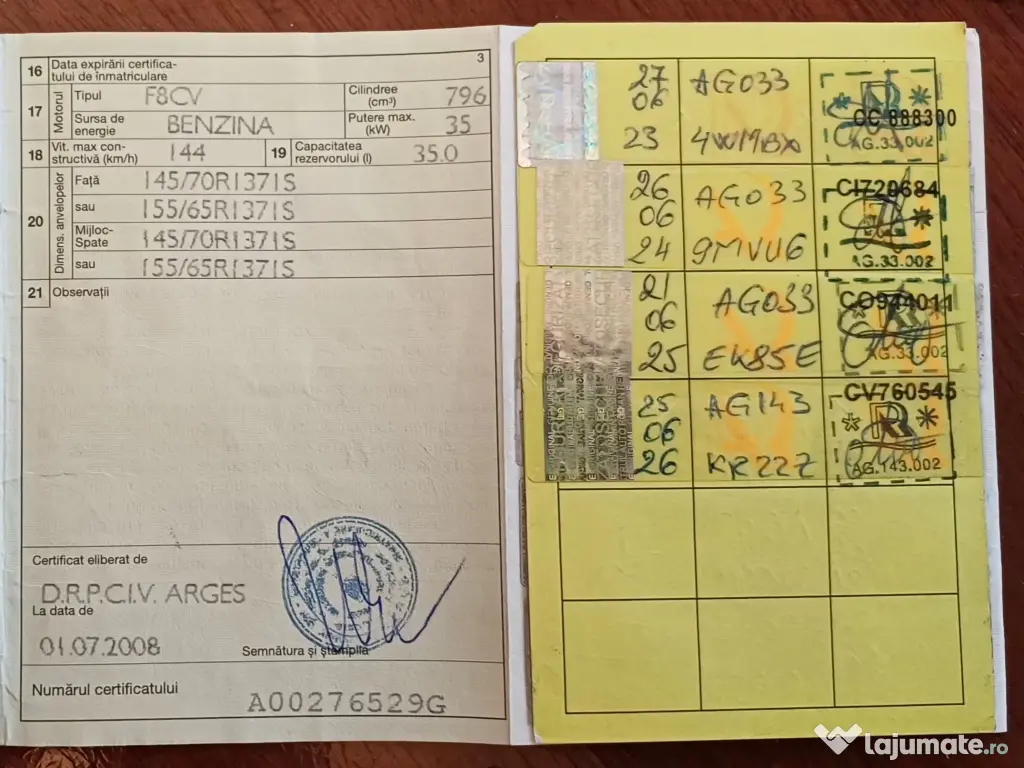 3
16 Data expirării certifica-
tului de înmatriculare
17 Motorul Tipul F8CV Cilindree
(cm³) 796
Sursa de
energie BENZINA Putere max.
(kW) 35
18 Vit. max con-
structivă (km/h) 144 19 Capacitatea
rezervorului (l) 35.0
20 Dimens. anvelopelor Față 145/70R1371S
sau 155/65R1371S
Mijloc-
Spate 145/70R1371S
sau 155/65R1371S
21 Observații
Certificat eliberat de
D.R.P.C.I.V. ARGES
La data de
01.07.2008
Semnătura și ștampila
Numărul certificatului
A00276529G
27 AG033
06 CC 888300
23 4W17BX AG.33.002
26 AG033 CI720684
06
24 9MVU6 AG.33.002
21 AG033 CO944011
06
25 EK85E AG.33.002
25 AG143 CV760545
06
26 KR22Z AG.143.002
lajumate.ro